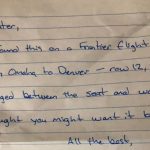 ter,
ound this on a Frontier flight
m Omaha to Denver — row 12,
ged between the seat and w
ught you might want it b
All the best,